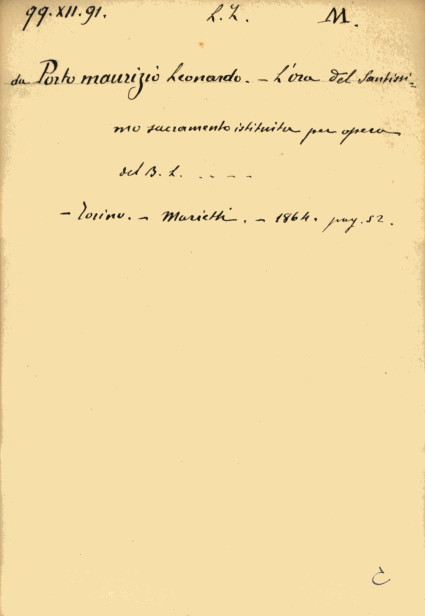 99.XII.91. L.L. M.
da Porto Maurizio Leonardo. - L'ora del Santissi-
mo sacramento istituita per opera
del B. L. - - - -
- Torino. - Marietti. - 1864. pag. 52.